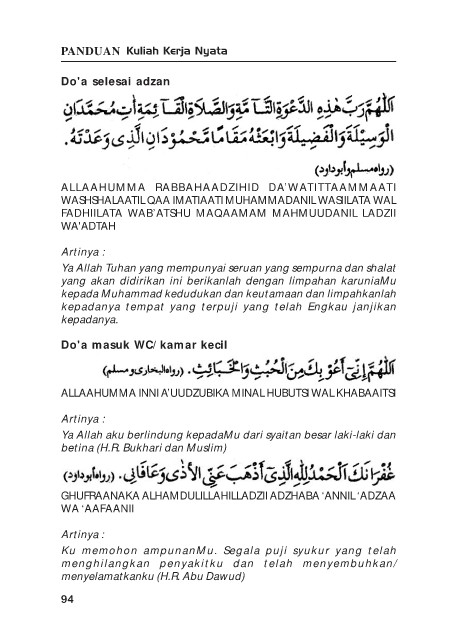 PANDUAN Kuliah Kerja Nyata
Do'a selesai adzan
اَللّٰهُمَّ رَبَّ هٰذِهِ الدَّعْوَةِ التَّآمَّةِ وَالصَّلَاةِ الْقَآئِمَةِ اٰتِ مُحَمَّدَانِ
الْوَسِيْلَةَ وَالْفَضِيْلَةَ وَابْعَثْهُ مَقَامًا مَّحْمُوْدَانِ الَّذِى وَعَدْتَهُ.
(رواه مسلم وأبو داود)
ALLAAHUMMA RABBAHAADZIHID DA'WATITTAAMMAATI
WASHSHALAATIL QAA IMATIAATI MUHAMMADANIL WASIILATA WAL
FADHIILATA WAB'ATSHU MAQAAMAM MAHMUUDANIL LADZII
WA'ADTAH
Artinya :
Ya Allah Tuhan yang mempunyai seruan yang sempurna dan shalat
yang akan didirikan ini berikanlah dengan limpahan karuniaMu
kepada Muhammad kedudukan dan keutamaan dan limpahkanlah
kepadanya tempat yang terpuji yang telah Engkau janjikan
kepadanya.
Do'a masuk WC/ kamar kecil
اَللّٰهُمَّ اِنِّىْ أَعُوْ بِكَ مِنَ الْخُبُثِ وَالْخَبَائِثِ. (رواه البخارى ومسلم)
ALLAAHUMMA INNI A'UUDZUBIKA MINAL HUBUTSI WAL KHABAAITSI
Artinya :
Ya Allah aku berlindung kepadaMu dari syaitan besar laki-laki dan
betina (H.R. Bukhari dan Muslim)
غُفْرَانَكَ اَلْحَمْدُ لِلّٰهِ الَّذِىْ أَذْهَبَ عَنِّى الْأَذٰى وَعَافَانِى. (رواه أبو داود)
GHUFRAANAKA ALHAMDULILLAHILLADZII ADZHABA 'ANNIL 'ADZAA
WA 'AAFAANII
Artinya :
Ku memohon ampunanMu. Segala puji syukur yang telah
menghilangkan penyakitku dan telah menyembuhkan/
menyelamatkanku (H.R. Abu Dawud)
94